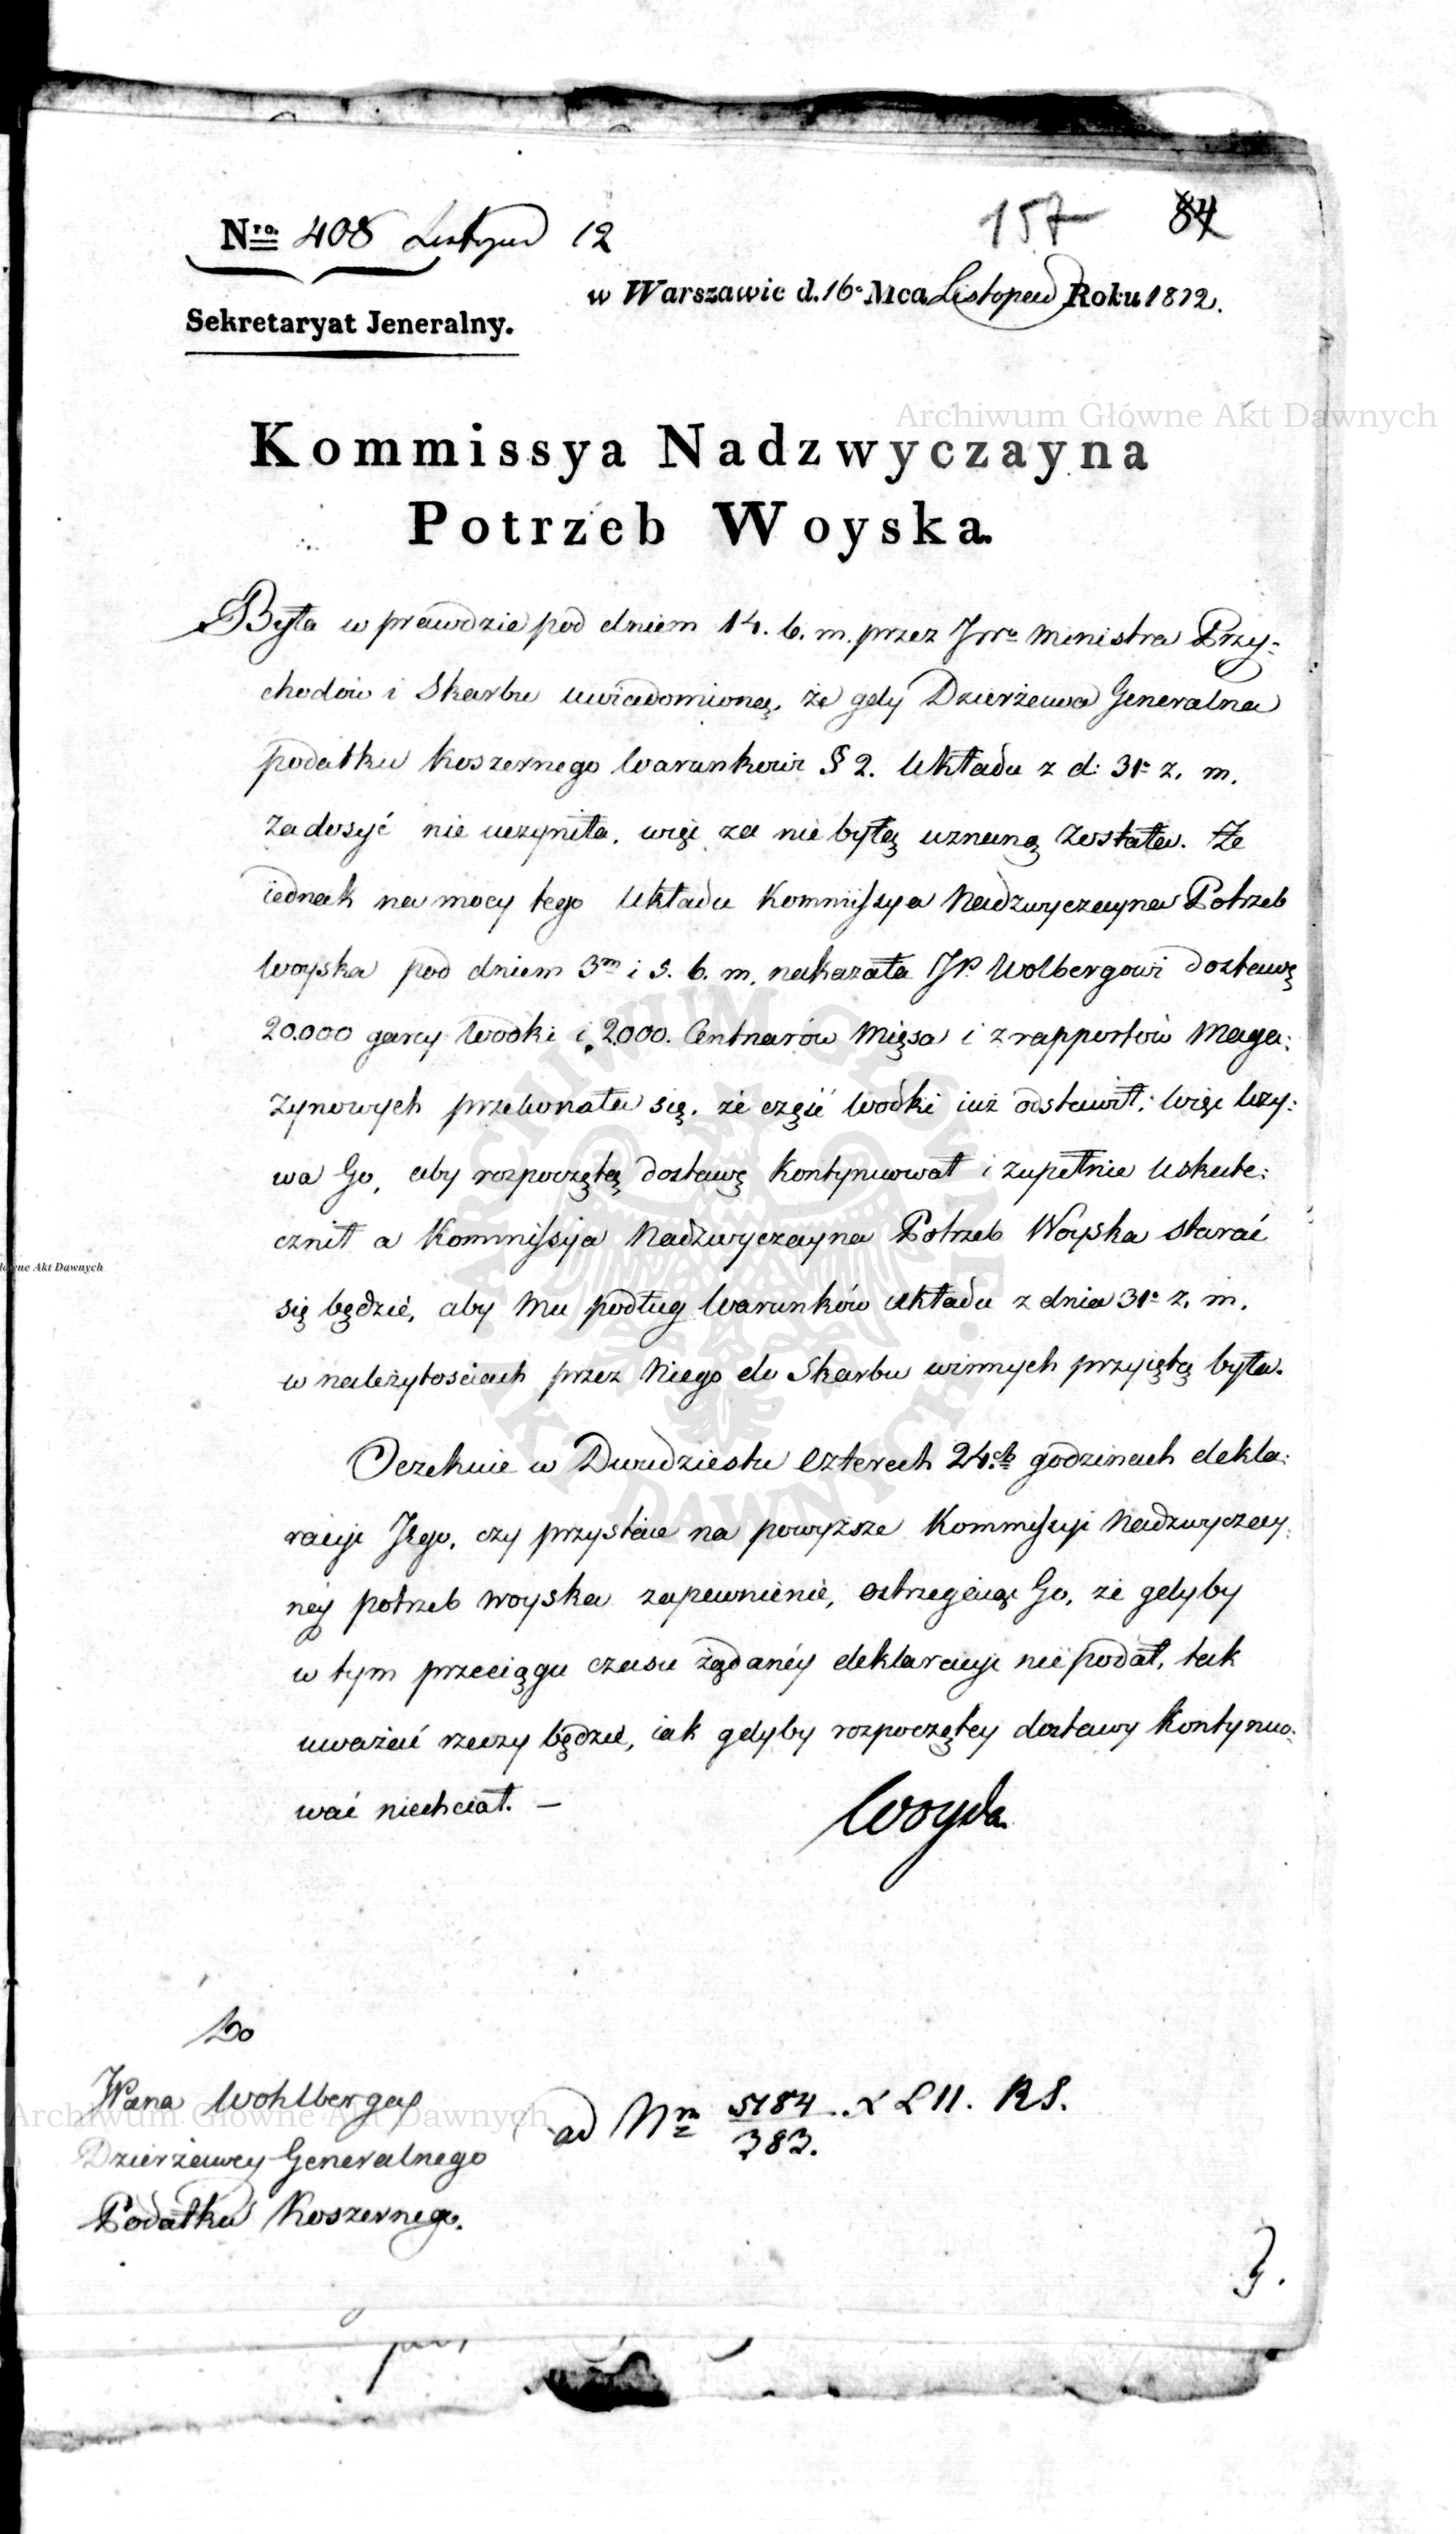 157 84
Nro. 408 Listopad 12
w Warszawie d. 16o Mca Listopad Roku 1812.
Sekretaryat Jeneralny.
Archiwum Główne Akt Dawnych
Kommissya Nadzwyczayna
Potrzeb Woyska.
Była w prawdzie pod dniem 14. b. m. przez JWo Ministra Przy-
chodow i Skarbu uwiadomioną, że gdy Dzierżawa Generalna
podatku Koszernego Warunkowi § 2. Układu z d: 31o z. m.
zadosyć nie uczyniła, więc za niebyłą uznaną została. Że
iednak na mocy tego Układu Kommissya Nadzwyczayna Potrzeb
Woyska pod dniem 3m i 5. b. m. nakazała JP. Wolbergowi dostawę
20.000 garcy Wodki i 2000. Centnarów Mięsa i z rapportów Maga:
zynowych przekonała się, że część Wodki iuż odstawił; Więc Wzy:
wa Go, aby rozpoczętą dostawę Kontynuował i zupełnie Uskute:
cznił a Kommissya Nadzwyczayna Potrzeb Woyska starać
się będzie, aby Mu podług Warunków układu z dnia 31o z. m.
w należytościach przez Niego do Skarbu winnych przyiętą była.
Oczekuie w Dwudziestu Czterech 24.ch godzinach dekla:
racyi Jego, czy przystaie na powyższe Kommissyi Nadzwyczay:
ney potrzeb woyska zapewnienie, ostrzegaiąc Go, że gdyby
w tym przeciągu czasu żądanéy deklaracyi nie podał, tak
uważać rzeczy będzie, iak gdyby rozpoczętey dostawy Kontynuo:
wać niechciał. —
Woyda
Do
JPana Wohlberga
Dzierżawcy Generalnego
Podatku Koszernego.
ad Nrm 5184/383.
Archiwum Główne Akt Dawnych
ARCHIWUM GŁÓWNE AKT DAWNYCH
łówne Akt Dawnych